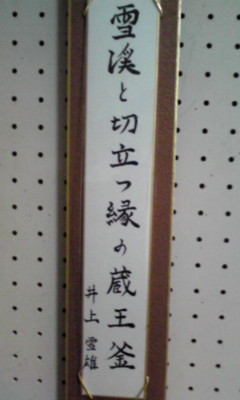 雪渓と切立つ縁の蔵王釜
井上雪雄